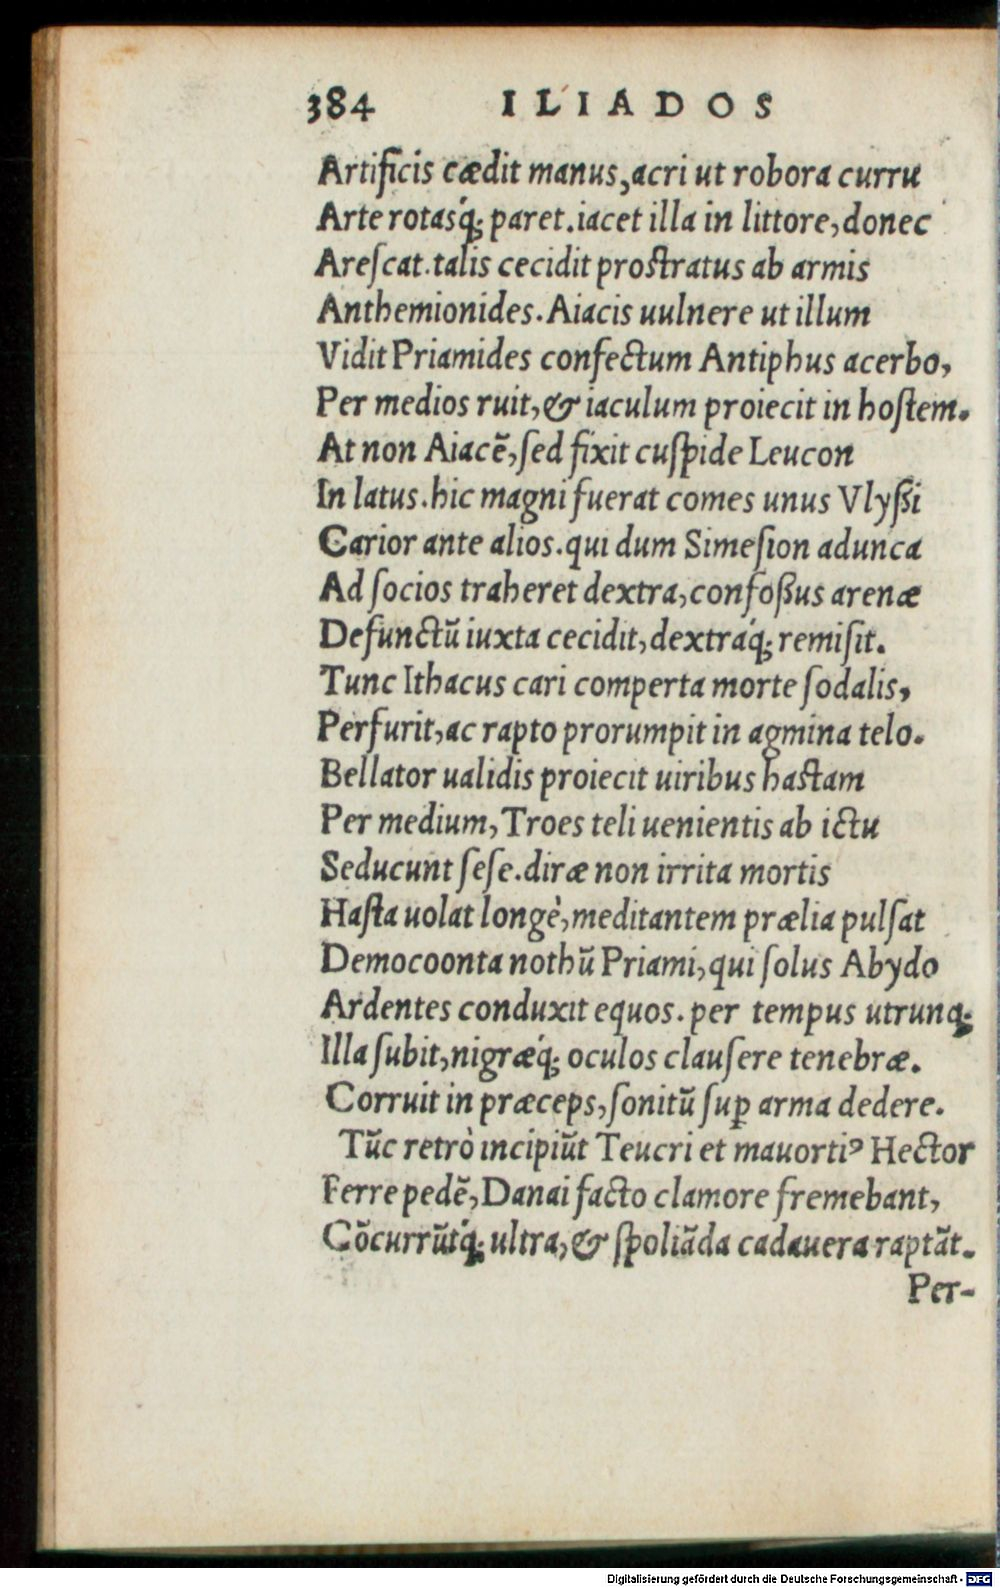 384 ILIADOS
Artificis cædit manus, acri ut robora curru
Arte rotasq́; paret. iacet illa in littore, donec
Areſcat. talis cecidit proſtratus ab armis
Anthemionides. Aiacis uulnere ut illum
Vidit Priamides confectum Antiphus acerbo,
Per medios ruit, & iaculum proiecit in hoſtem.
At non Aiacẽ, ſed fixit cuſpide Leucon
In latus. hic magni fuerat comes unus Vlyßi
Carior ante alios. qui dum Simeſion adunca
Ad ſocios traheret dextra, confoßus arenæ
Defunctũ iuxta cecidit, dextraq́; remiſit.
Tunc Ithacus cari comperta morte ſodalis,
Perfurit, ac rapto prorumpit in agmina telo.
Bellator ualidis proiecit uiribus haſtam
Per medium, Troes teli uenientis ab ictu
Seducunt ſeſe. diræ non irrita mortis
Haſta uolat longè, meditantem prælia pulſat
Democoonta nothũ Priami, qui ſolus Abydo
Ardentes conduxit equos. per tempus utrunq;
Illa ſubit, nigræq́; oculos clauſere tenebræ.
Corruit in præceps, ſonitũ ſuꝑ arma dedere.
Tũc retrò incipiũt Teucri et mauortiꝰ Hector
Ferre pedẽ, Danai facto clamore fremebant,
Cõcurrũtq́; ultra, & ſpoliãda cadauera raptãt.
Per-
Digitalisierung gefördert durch die Deutsche Forschungsgemeinschaft - DFG